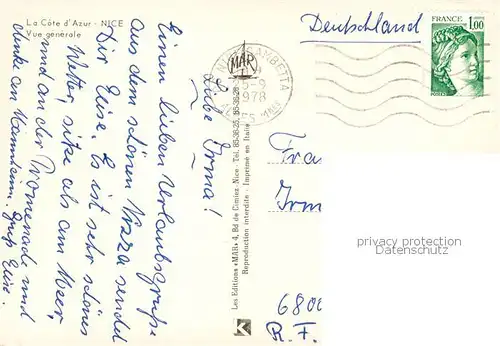 La Côte d'Azur - NICE
Vue générale
Liebe Irma!
Einen lieben Urlaubsgruß
aus dem schönen Nizza sendet
Dir Elise. Es ist sehr schönes
Wetter, sitze als am Meer,
und an der Promenade und
denke an Mannheim. Gruß Elise.
Les Editions «MAR» 4, Bd de Cimiez - Nice - Tél. 85-36-25, 85-38-28
Reproduction interdite - Imprimé en Italie
MAR
K
Deutschland
GAMBETTA
15-9
1978
FRANCE
1,00
POSTES
Fra
Irm
privacy protection
Datenschutz
6800
B.F.